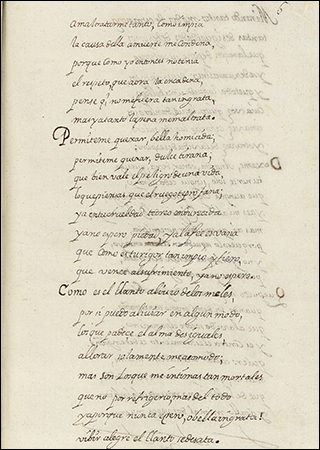 a maltratarme tanto, como impia
la causa della a muerte me condena,
porque como yo entonces no tenia
el respeto, que aora la encadena,
pense q no me fuera tan ingrata,
mas ya tanto la pena me maltrata.
Permiteme quexar, bella homicida,
permiteme quexar, dulce tirana,
que bien vale el peligro de una vida
lo que piensas que el ruego
ya en te crueldad endurecida
ya no espero piedad,
que como es tu rigor tan impio y fiero,
que vence al sufrimiento, ya no espero.
Como es el llanto alivio de los males
por si puedo aliviar en algun modo,
lo que padece el alma desiguales
a llorar solamente me acomodo;
mas son los que me intimas tan mortales
que no por refrigerio, mas del todo
ya porque nunca espero, o bella ingrata!
vivir alegre el llanto se desata.